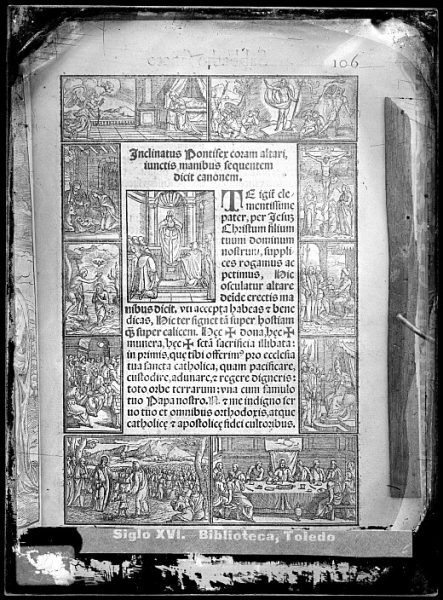 106
Inclinatus Pontifex coram altari,
iunctis manibus sequentem
dicit canonem.
TE igit̃ cle⸗
mentissime
pater, per Iesuz
Christum filium
tuum dominum
nostrum, supplị
ces rogamus ac
petimus, Hic
osculatur altare
deĩde erectis ma
nibus dicit. vti accepta habeas ⁊ bene
dicas, Hic ter signet tã super hostiam
q̃ꝫ super calicem. Hec ✠ dona, hec ✠
munera, hec ✠ sctã sacrificia illibata:
in primis, que tibi offerim⁹ pro ecclesia
tua sancta catholica, quam pacificare,
custodire, adunare, ⁊ regere digneris:
toto orbe terrarum: vna cum famulo
tuo Papa nostro. N. ⁊ me indigno ser
uo tuo et omnibus orthodoxis, atque
catholice ⁊ apostolice fidei cultoribus.
Siglo XVI. Biblioteca, Toledo